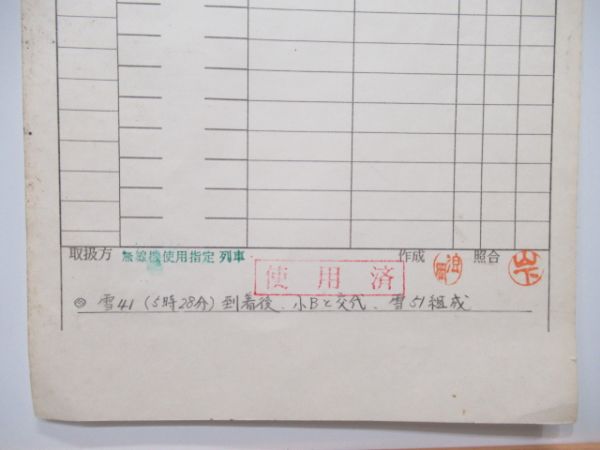 取扱方 無線機使用指定 列車 作成 照合 山下
使用済
◎ 雪41 (5時28分) 到着後、小Bと交代、雪51組成